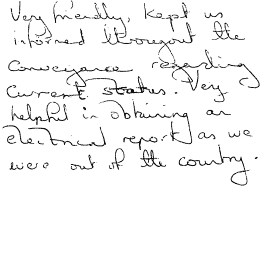 Very friendly, kept us
informed througout the
conveyance regarding
current status. Very
helpful in obtaining an
electrical report as we
were out of the country.